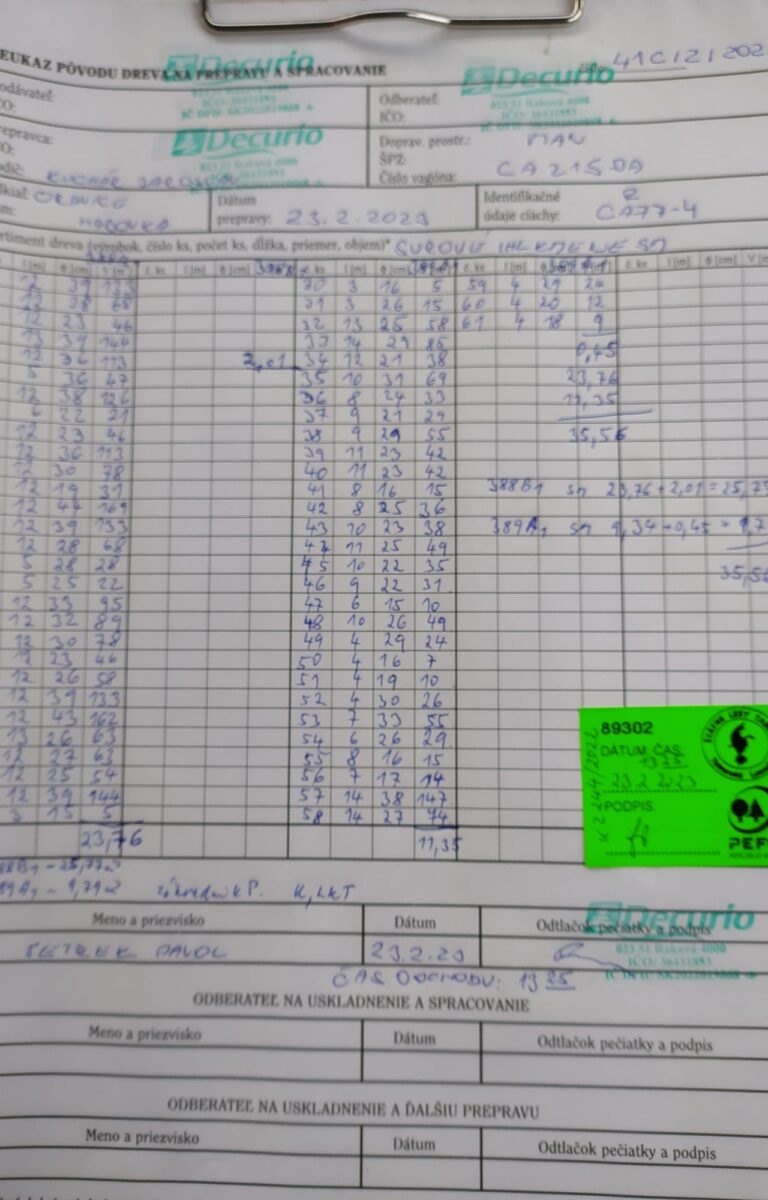 EUKAZ PÔVODU DREVA NA PREPRAVU A SPRACOVANIE
Decurio
Decurio
41C/2/202
odávateľ:
ČO:
Odberateľ:
IČO:
023 51 Raková 4000
IČO: 36431893
repravca:
Decurio
023 51 Raková 4000
Doprav. prostr.: MAN
ŠPZ:
Číslo vagóna: CA215DA
Dátum
prepravy: 23.2.2023
Identifikačné
údaje ciachy: 2
CA77-4
ortiment dreva (výrobok, číslo ks, počet ks, dĺžka, priemer, objem)* SUROVÉ IHL KMENE SM
l [m] φ [cm] V č. ks l [m] φ [cm] č. ks l [m] φ [cm] č. ks l [m] φ č. ks l [m] φ [cm] V [m
12 39 133 30 3 16 5 59 4 29 24
12 28 68 31 3 26 15 60 4 20 12
12 23 46 32 13 25 58 61 4 18 9
13 39 144 33 14 29 85 0,45
12 36 113 2,01 34 12 21 38
5 36 47 35 10 31 69 23,76
12 38 126 36 8 24 33 11,35
6 22 21 37 9 21 29
12 23 46 38 9 29 55 35,56
12 36 113 39 11 23 42
12 30 78 40 11 23 42
12 19 31 41 8 16 15 388B1 sm 23,76+2,01=25,77
12 44 169 42 8 25 36
12 39 133 43 10 23 38 389A1 sm 9,34+0,45=9,7
12 28 68 44 11 25 49
5 28 28 45 10 22 35 35,56
5 25 22 46 9 22 31
12 33 95 47 6 15 10
12 32 89 48 10 26 49
12 30 78 49 4 29 24
12 23 46 50 4 16 7
12 26 58 51 4 19 10
12 39 133 52 4 30 26
12 43 162 53 7 33 55
13 26 63 54 6 26 29
12 27 63 55 8 16 15
12 25 54 56 7 17 14
12 39 144 57 14 38 147
3 15 5 58 14 27 74
23,76 11,35
89302
DÁTUM, ČAS:
1325
23 2 2023
PODPIS
K2244/2022
PEF
88B1 - 25,77
89A1 - 9,79
Meno a priezvisko Dátum Odtlačok pečiatky a podpis
PAVOL 23.2.23
Decurio
023 51 Raková 4000
IČO: 36431893
ČAS ODCHODU: 13 25
ODBERATEĽ NA USKLADNENIE A SPRACOVANIE
Meno a priezvisko Dátum Odtlačok pečiatky a podpis
ODBERATEĽ NA USKLADNENIE A ĎALŠIU PREPRAVU
Meno a priezvisko Dátum Odtlačok pečiatky a podpis